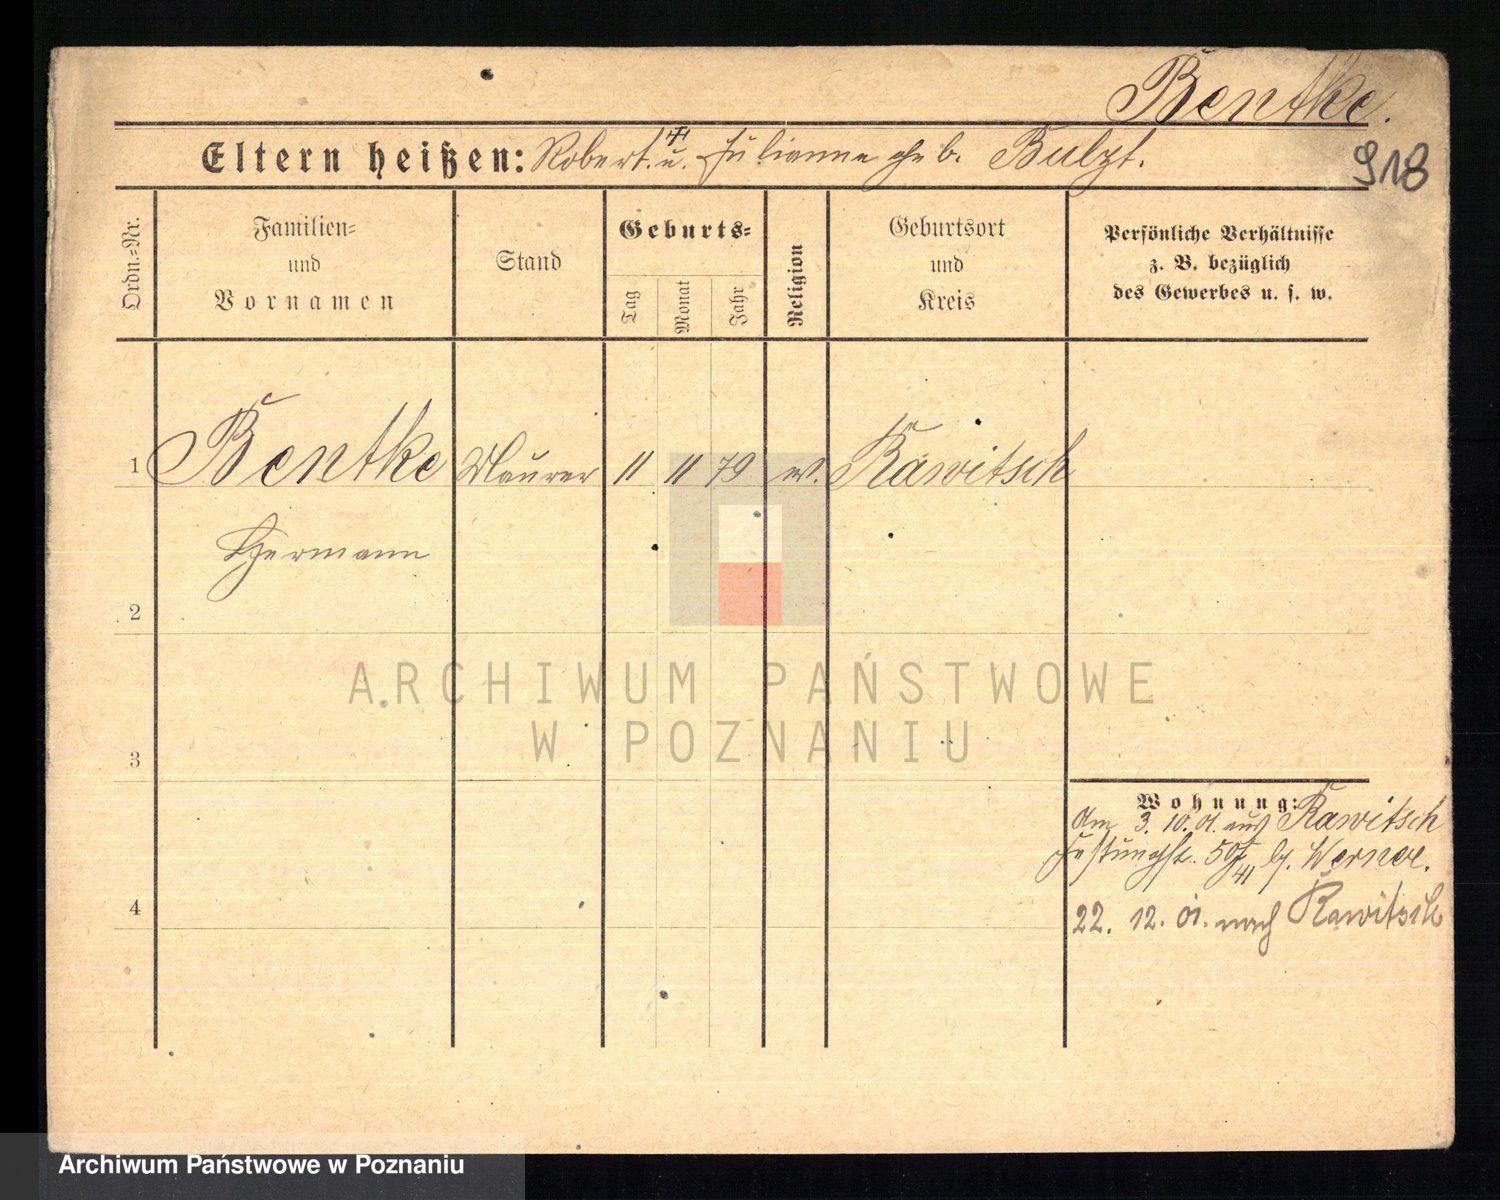 Bentke.
918
Eltern heißen: Robert. u. Julianne geb. Bulzt.
Ordn.-Nr.
Familien-
und
Vornamen
Stand
Geburts-
Tag
Monat
Jahr
Religion
Geburtsort
und
Kreis
Persönliche Verhältnisse
z. B. bezüglich
des Gewerbes u. s. w.
1 Bentke Maurer 11 11 79 Rawitsch
Hermann
2
3
4
Wohnung:
Am 3. 10. 01. aus Rawitsch
Festungsstr. 50 b. Werner.
22. 12. 01. nach Rawitsch
ARCHIWUM PAŃSTWOWE
W POZNANIU
Archiwum Państwowe w Poznaniu